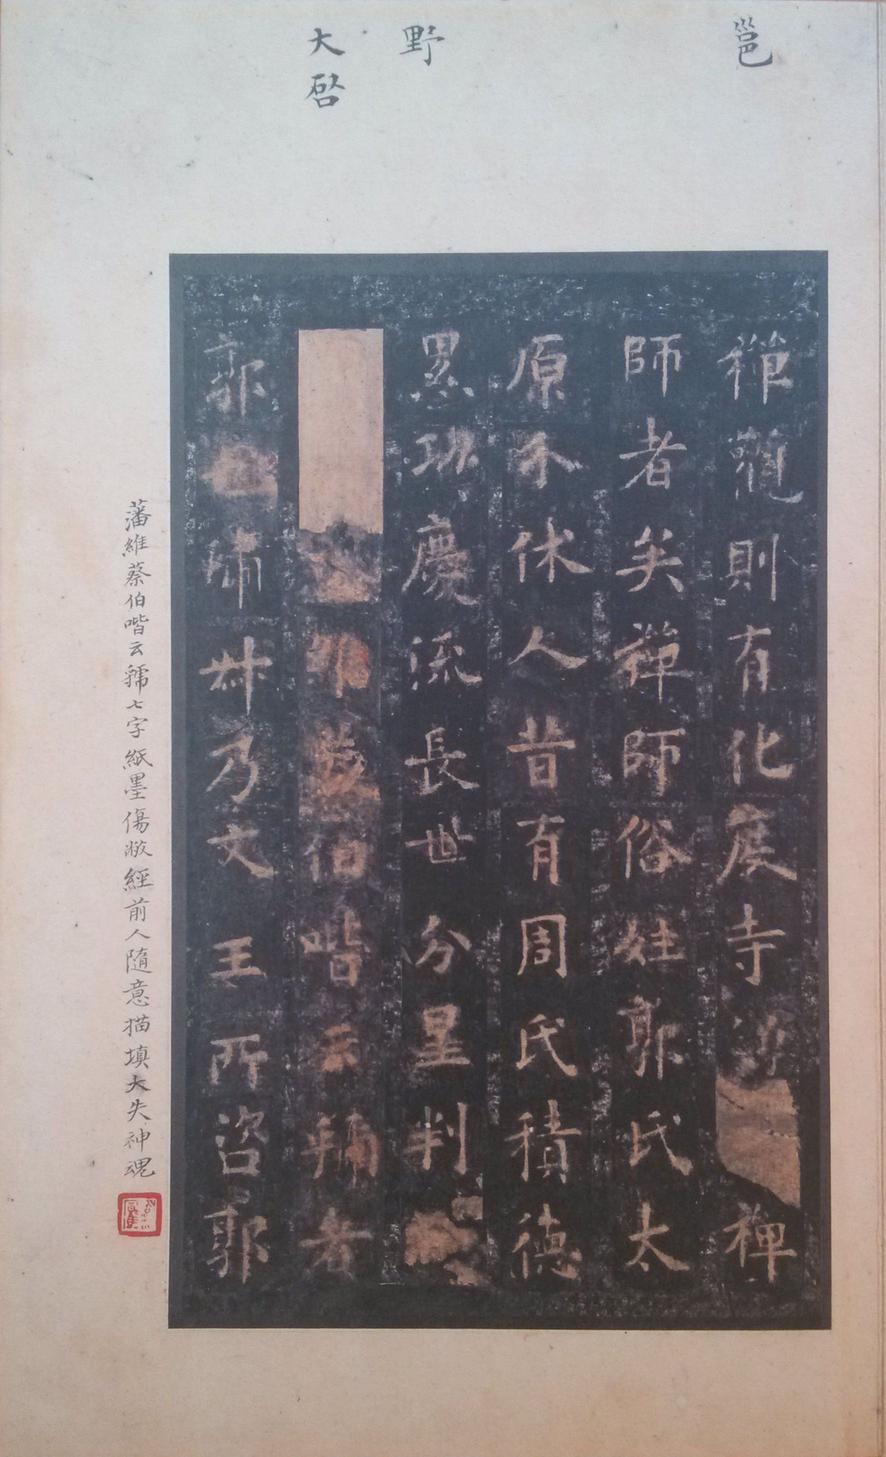 邕
野
大啓
禪觀則有化度寺僧禪
師者矣禪師俗姓郭氏太
原介休人昔有周氏積德
累功慶流長世分星判
藩維蔡伯喈云虢者
郭也虢叔乃文王所咨郭
藩維蔡伯喈云虢七字紙墨傷敝經前人隨意描填大失神魂